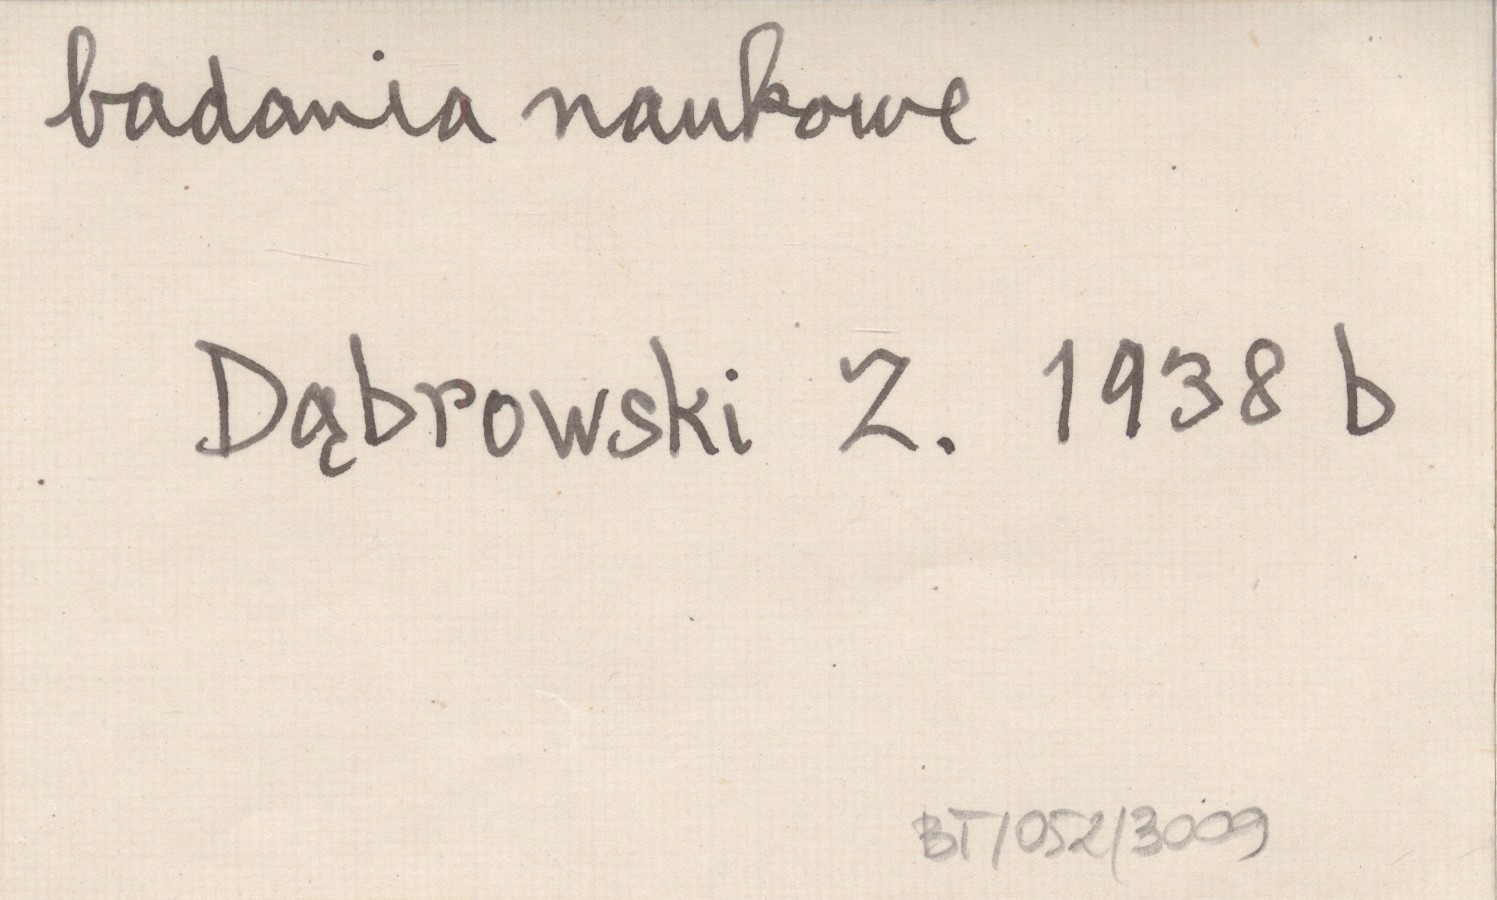 badania naukowe
Dąbrowski Z. 1938 b
BT/052/3009